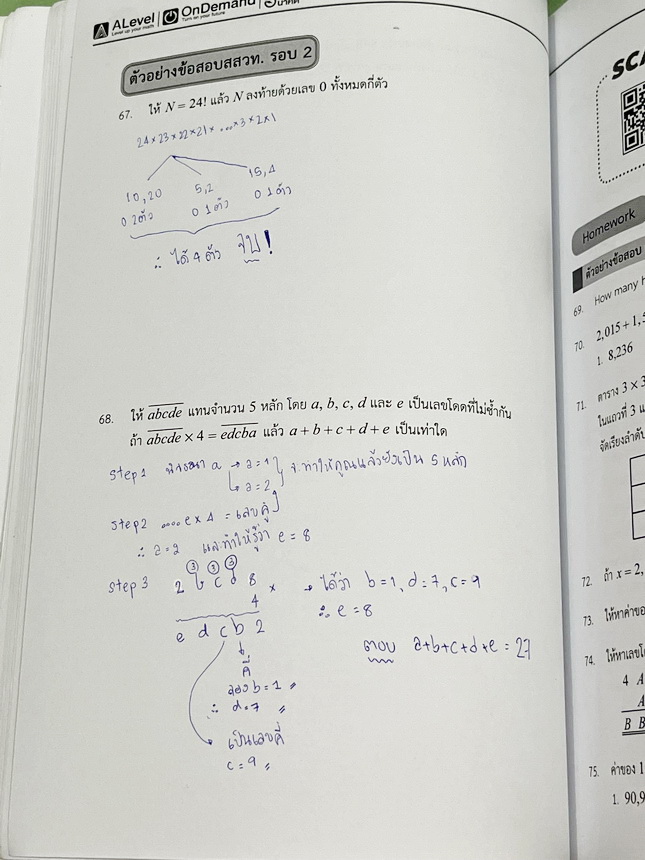 ALevel OnDemand
Level up your math Turn on your future
ตัวอย่างข้อสอบสสวท. รอบ 2
67. ให้ N = 24! แล้ว N ลงท้ายด้วยเลข 0 ทั้งหมดกี่ตัว
24×23×22×21× ...×3×2×1
10,20 5,2 15,4
0 2ตัว 0 1ตัว 0 1ตัว
∴ ได้ 4 ตัว จบ!
68. ให้ abcde แทนจำนวน 5 หลัก โดย a, b, c, d และ e เป็นเลขโดดที่ไม่ซ้ำกัน
ถ้า abcde × 4 = edcba แล้ว a + b + c + d + e เป็นเท่าใด
Step1 พิจารณา a → a=1
→ a=2 จะทำให้คูณแล้วยังเป็น 5 หลัก
Step2 ....e×4 = เลขคู่
∴ a=2 และทำให้รู้ว่า e = 8
Step3
3 3 3
2 b c d 8
4 ×
e d c b 2
→ ได้ว่า b=1, d=7, c=9
∴ e=8
ตอบ a+b+c+d+e = 27
คี่
b=1
∴ d=7
เป็นเลขคี่
c=9
SCA
Homework
ตัวอย่างข้อสอบ
69. How many
70. 2,015 + 1,5
1. 8,236
71. ตาราง 3 × 3
ในแถวที่ 3
จัดเรียงลำดับ
72. ถ้า x = 2,
73. ให้หาค่าของ
74. ให้หาเลขโด
4 A
A
B B
75. ค่าของ 1
1. 90,9